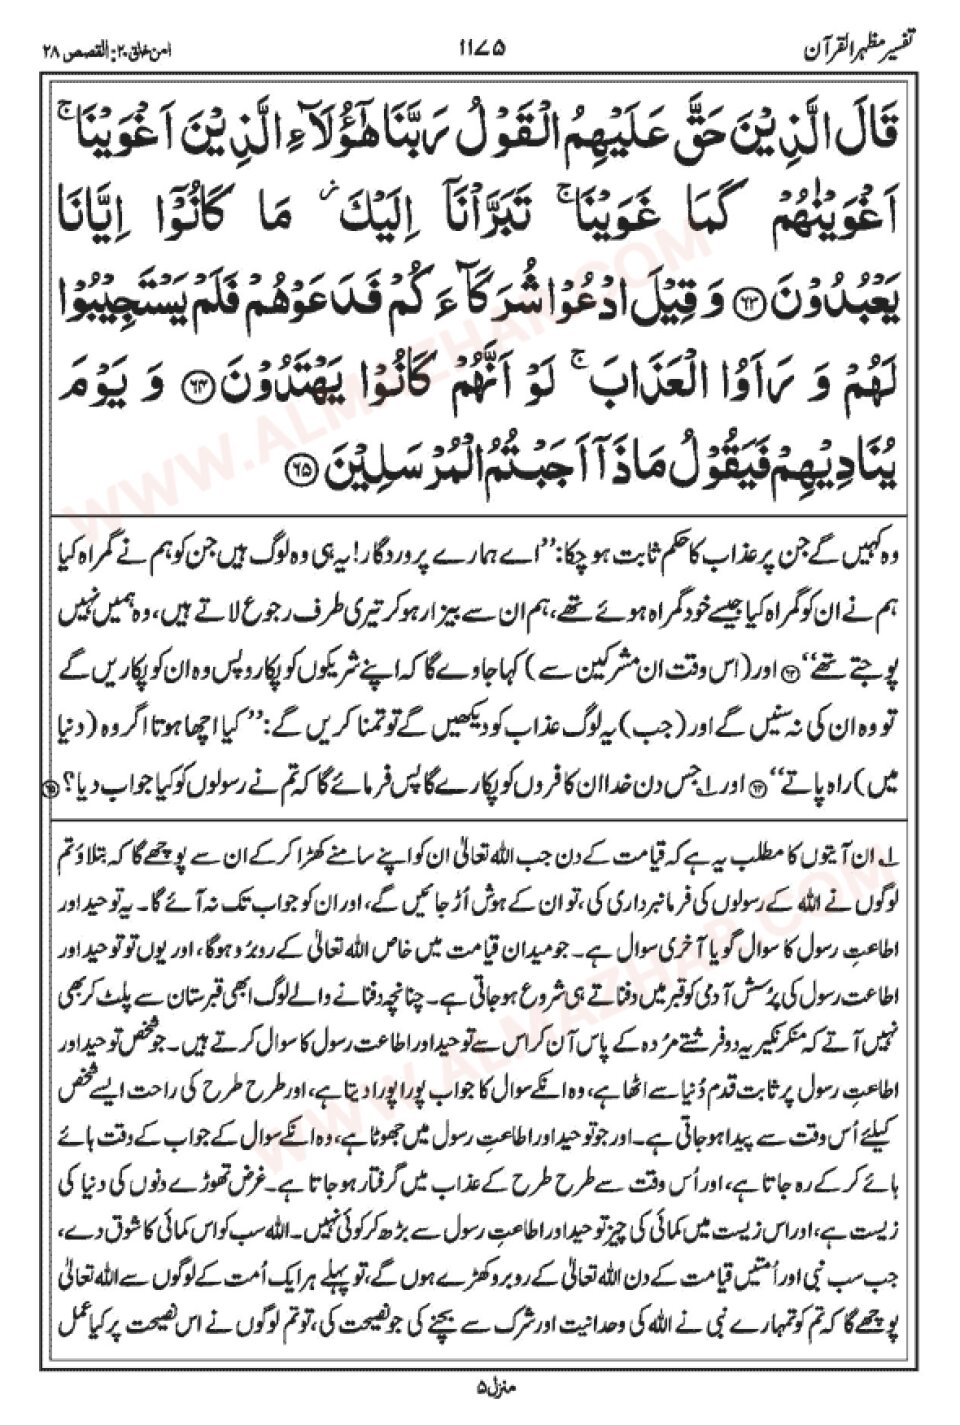 تفسیر مظہر القرآن
۱۱۷۵
امن خلق ۲۰: القصص ۲۸
قَالَ الَّذِیْنَ حَقَّ عَلَیْهِمُ الْقَوْلُ رَبَّنَا هٰۤؤُلَآءِ الَّذِیْنَ اَغْوَیْنَا ۚ
اَغْوَیْنٰهُمْ كَمَا غَوَیْنَا ۚ تَبَرَّاْنَاۤ اِلَیْكَ ؗ مَا كَانُوْۤا اِیَّانَا
یَعْبُدُوْنَ ﴿۶۳﴾ وَ قِیْلَ ادْعُوْا شُرَكَآءَكُمْ فَدَعَوْهُمْ فَلَمْ یَسْتَجِیْبُوْا
لَهُمْ وَ رَاَوُا الْعَذَابَ ۚ لَوْ اَنَّهُمْ كَانُوْا یَهْتَدُوْنَ ﴿۶۴﴾ وَ یَوْمَ
یُنَادِیْهِمْ فَیَقُوْلُ مَاذَاۤ اَجَبْتُمُ الْمُرْسَلِیْنَ ﴿۶۵﴾
وہ کہیں گے جن پر عذاب کا حکم ثابت ہو چکا: ’’اے ہمارے پروردگار! یہ ہی وہ لوگ ہیں جن کو ہم نے گمراہ کیا
ہم نے ان کو گمراہ کیا جیسے خود گمراہ ہوئے تھے، ہم ان سے بیزار ہو کر تیری طرف رجوع لاتے ہیں، وہ ہمیں نہیں
پوجتے تھے‘‘ ﴿۶۳﴾ اور (اس وقت ان مشرکین سے) کہا جاوے گا کہ اپنے شریکوں کو پکارو پس وہ ان کو پکاریں گے
تو وہ ان کی نہ سنیں گے اور (جب) یہ لوگ عذاب کو دیکھیں گے تو تمنا کریں گے: ’’کیا اچھا ہوتا اگر وہ (دنیا
میں) راہ پاتے‘‘ ﴿۶۴﴾ اور ۱؎ جس دن خدا ان کافروں کو پکارے گا پس فرمائے گا کہ تم نے رسولوں کو کیا جواب دیا؟ ﴿۶۵﴾
۱؎ ان آیتوں کا مطلب یہ ہے کہ قیامت کے دن جب اللہ تعالیٰ ان کو اپنے سامنے کھڑا کر کے ان سے پوچھے گا کہ بتلاؤ تم
لوگوں نے اللہ کے رسولوں کی فرمانبرداری کی، تو ان کے ہوش اُڑ جائیں گے، اور ان کو جواب تک نہ آئے گا۔ یہ توحید اور
اطاعتِ رسول کا سوال گویا آخری سوال ہے۔ جو میدان قیامت میں خاص اللہ تعالیٰ کے روبرُو ہوگا، اور یوں تو توحید اور
اطاعت رسول کی پرُسش آدمی کو قبر میں دفناتے ہی شروع ہو جاتی ہے۔ چنانچہ دفنانے والے لوگ ابھی قبرستان سے پلٹ کر بھی
نہیں آتے کہ منکر نکیر یہ دو فرشتے مرُدہ کے پاس آن کر اس سے توحید اور اطاعت رسول کا سوال کرتے ہیں۔ جو شخص توحید اور
اطاعتِ رسول پر ثابت قدم دُنیا سے اٹھا ہے، وہ انکے سوال کا جواب پورا پورا دیتا ہے، اور طرح طرح کی راحت ایسے شخص
کیلئے اُس وقت سے پیدا ہو جاتی ہے۔ اور جو توحید اور اطاعتِ رسول میں جھوٹا ہے، وہ انکے سوال کے جواب کے وقت ہائے
ہائے کر کے رہ جاتا ہے، اور اُس وقت سے طرح طرح کے عذاب میں گرفتار ہو جاتا ہے۔ غرض تھوڑے دنوں کی دنیا کی
زیست ہے، اور اس زیست میں کمائی کی چیز توحید اور اطاعتِ رسول سے بڑھ کر کوئی نہیں۔ اللہ سب کو اس کمائی کا شوق دے،
جب سب نبی اور اُمتیں قیامت کے دن اللہ تعالیٰ کے روبرو کھڑے ہوں گے، تو پہلے ہر ایک اُمت کے لوگوں سے اللہ تعالیٰ
پوچھے گا کہ تم کو تمہارے نبی نے اللہ کی وحدانیت اور شرک سے بچنے کی جو نصیحت کی، تو تم لوگوں نے اس نصیحت پر کیا عمل
منزل ۵
WWW.ALMAZHAR.COM
WWW.ALMAZHAR.COM